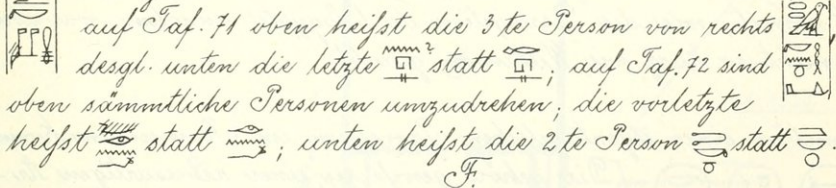 auf Taf. 71 oben heißt die 3 te Person von rechts
desgl. unten die letzte ? statt ; auf Taf. 72 sind
oben sämmtliche Personen umzudrehen; die vorletzte
heißt statt ; unten heißt die 2 te Person statt .
F.